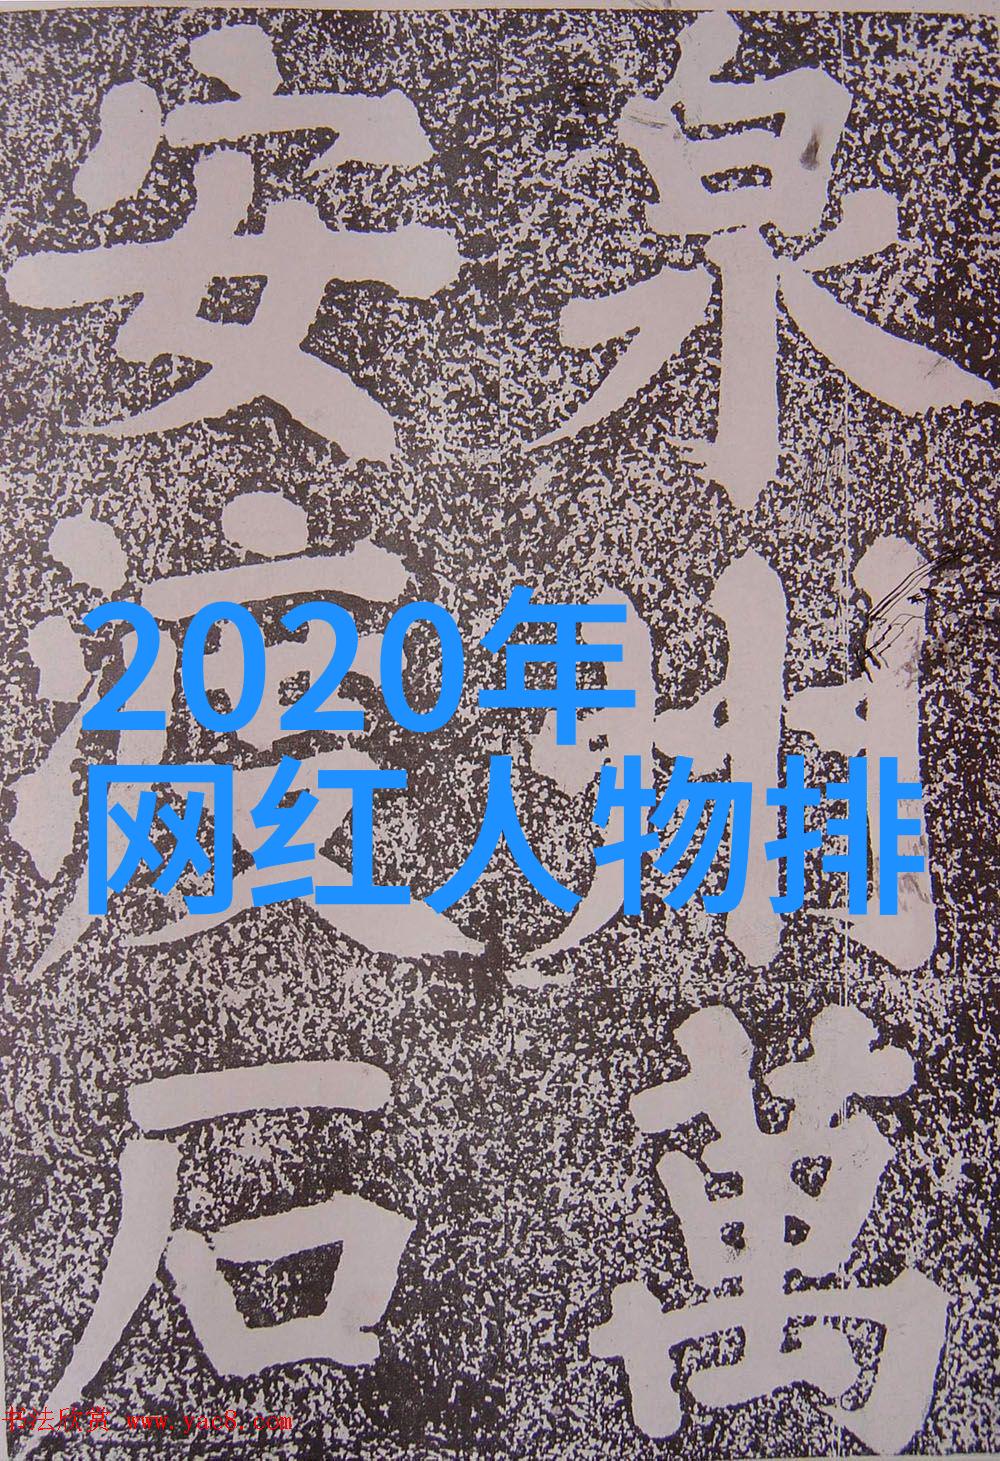 泉州萬
安渡石
2020年
网红人物排
书法欣赏 www.yac8.com